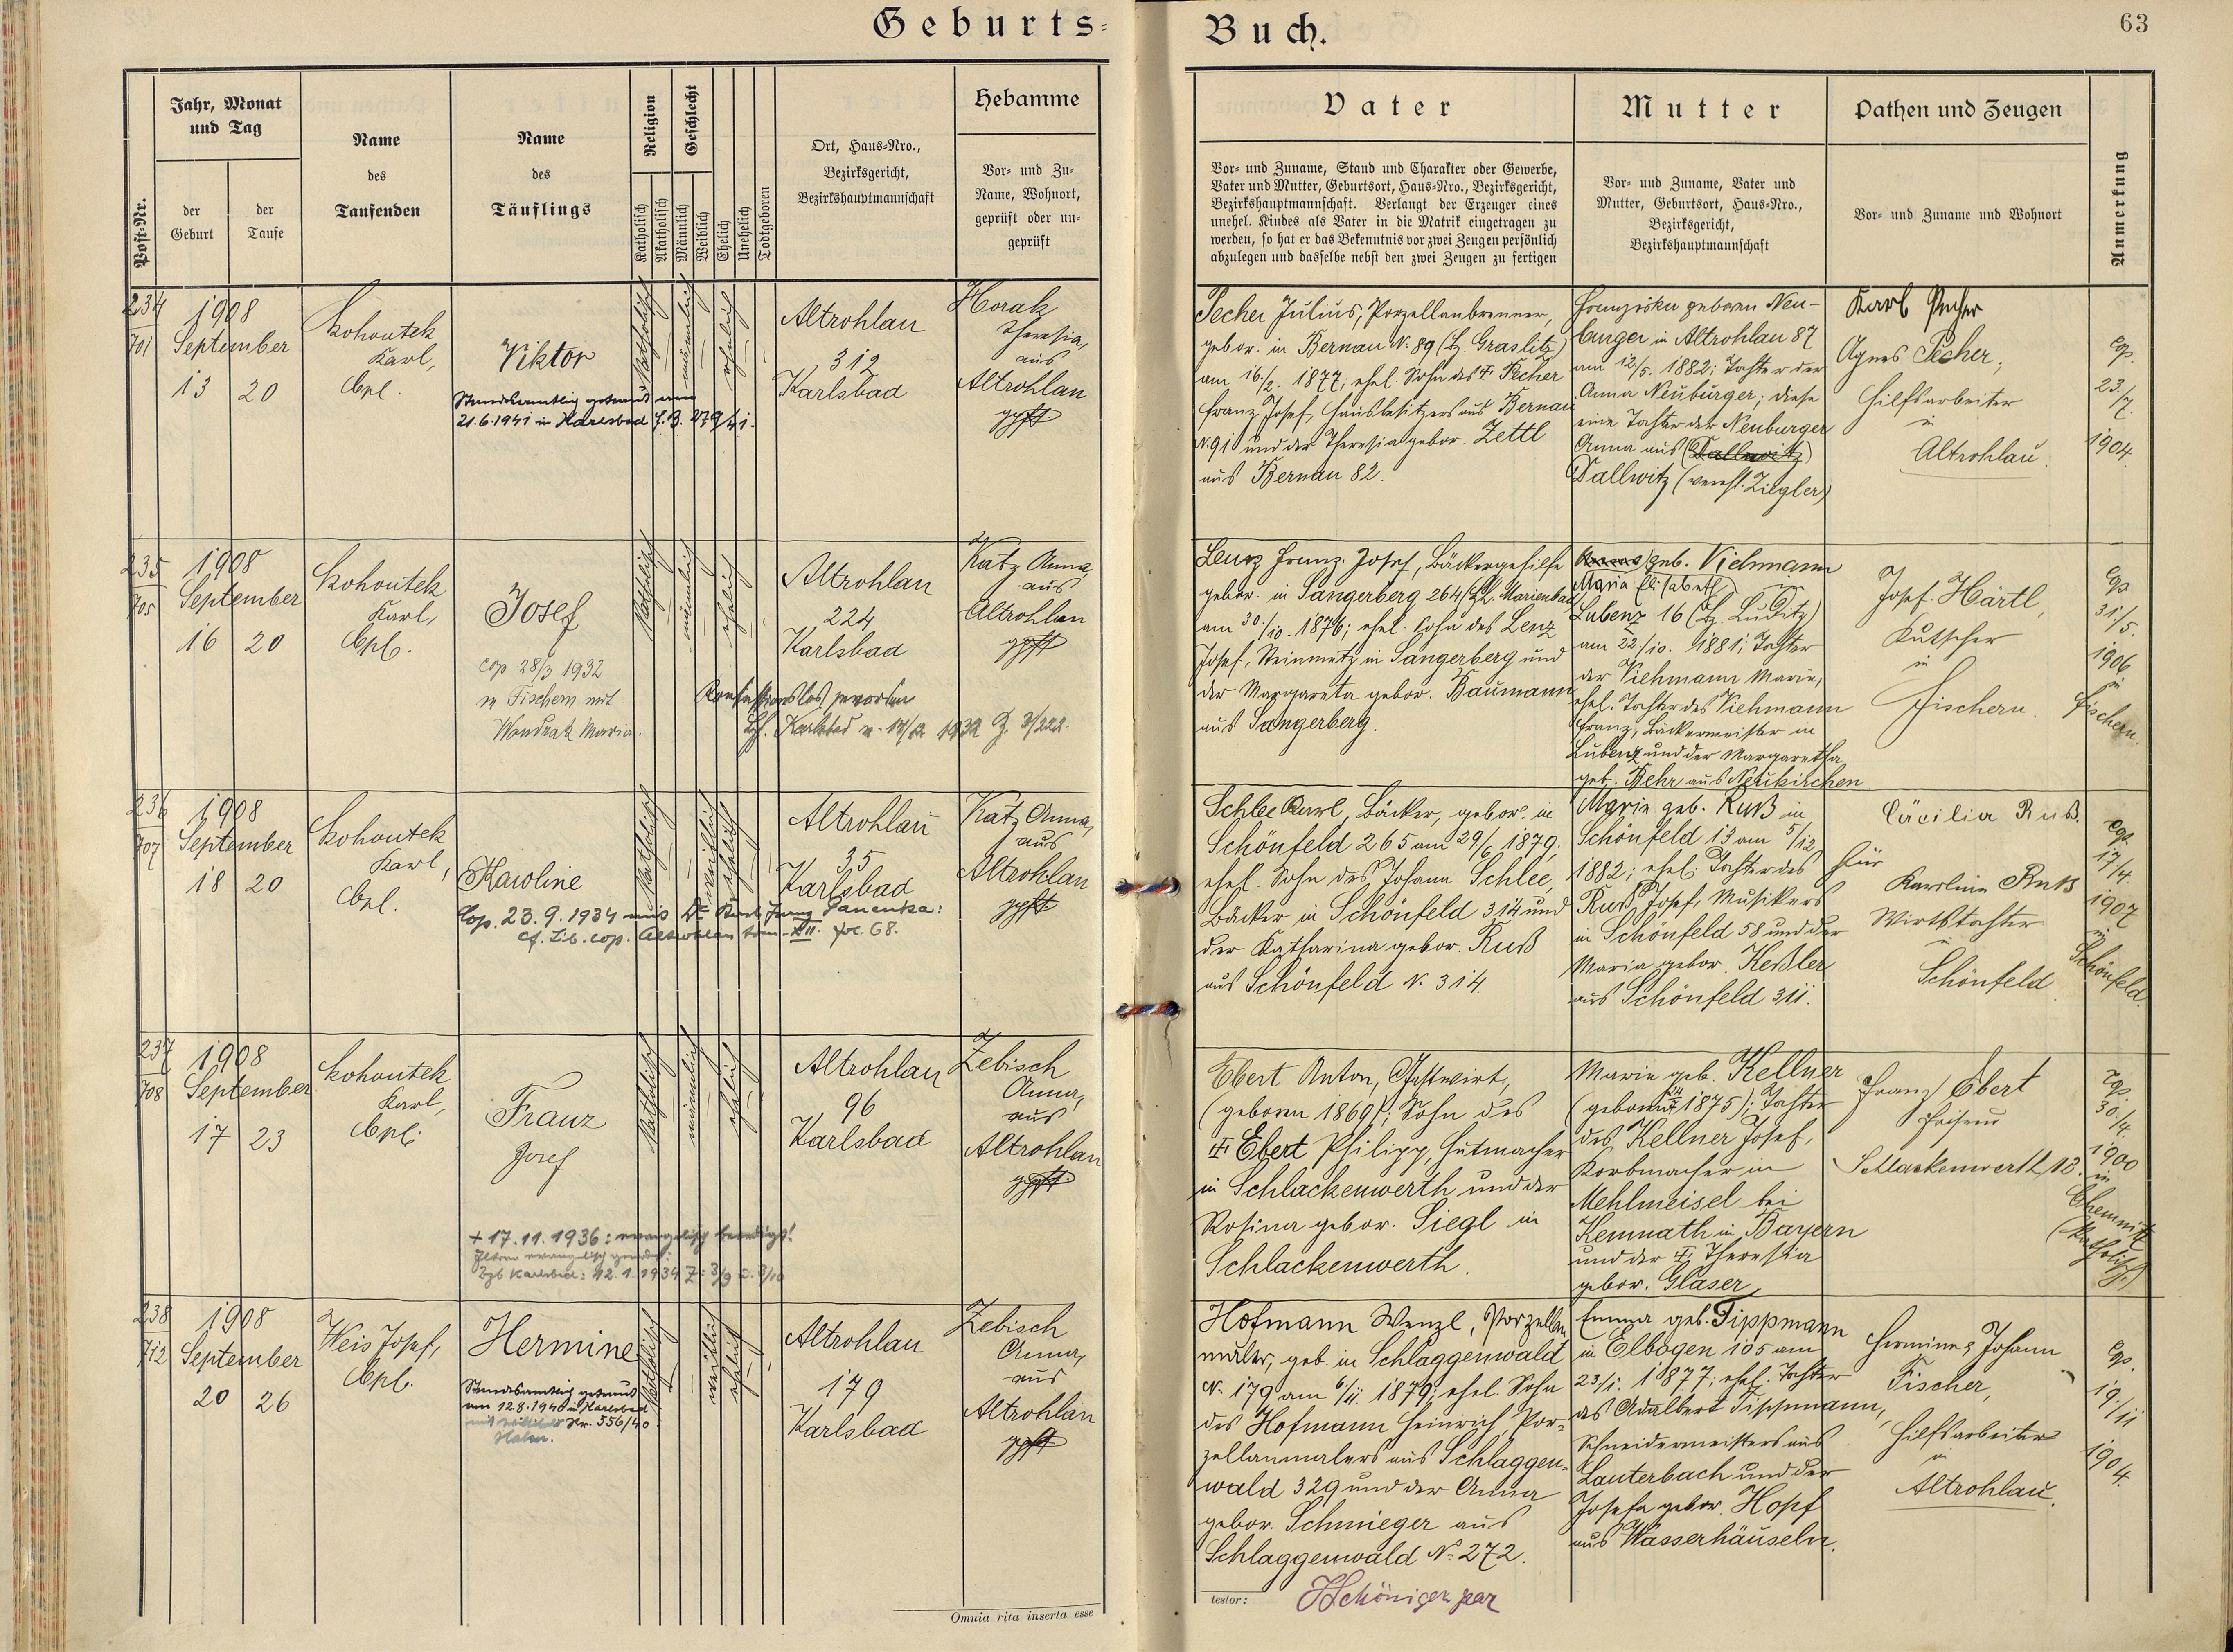 Geburts-
Jahr, Monat
und Tag
Post-Nr.
der
Geburt
der
Taufe
Name
des
Taufenden
Name
des
Täuflings
Religion
Katholisch
Akatholisch
Geschlecht
Männlich
Weiblich
Ehelich
Unehelich
Todtgeboren
Ort, Haus-Nro.,
Bezirksgericht,
Bezirkshauptmannschaft
Hebamme
Vor- und Zu-
Name, Wohnort,
geprüft oder un-
geprüft
234
701
1908
September
13 20
Kohoutek
Karl,
Cpl.
Viktor
Standesamtlich getraut am
21.6.1941 in Karlsbad F.B. 279/41.
katholisch
männlich
ehelich
Altrohlau
312
Karlsbad
Horak
Theresia,
aus
Altrohlau
gpft
235
705
1908
September
16 20
Kohoutek
Karl,
Cpl.
Josef
cop 28/3 1932
in Fischern mit
Wondrak Maria.
Konfessionslos geworden
katholisch
männlich
ehelich
Altrohlau
224
Karlsbad
Katz Anna,
aus
Altrohlau
gpft
236
707
1908
September
18 20
Kohoutek
Karl,
Cpl.
Karoline
Cop. 23.9.1934 mit Dr.
cf. Lib. cop. Altrohlau tom. XII. fol. 68.
katholisch
weiblich
ehelich
Altrohlau
35
Karlsbad
Katz Anna,
aus
Altrohlau
gpft
237
708
1908
September
17 23
Kohoutek
Karl,
Cpl.
Franz
Josef
+ 17.11.1936: evangelisch beerdigt!
katholisch
männlich
ehelich
Altrohlau
96
Karlsbad
Zebisch
Anna,
aus
Altrohlau
gpft
238
712
1908
September
20 26
Weis Josef,
Cpl.
Hermine
Standesamtlich getraut
am 12.8.1940 in Karlsbad
Nr. 556/40
katholisch
weiblich
ehelich
Altrohlau
179
Karlsbad
Zebisch
Anna,
aus
Altrohlau
gpft
Omnia rita inserta esse
Buch.
63
Vater
Vor- und Zuname, Stand und Charakter oder Gewerbe,
Vater und Mutter, Geburtsort, Haus-Nro., Bezirksgericht,
Bezirkshauptmannschaft. Verlangt der Erzeuger eines
unehel. Kindes als Vater in die Matrik eingetragen zu
werden, so hat er das Bekenntnis vor zwei Zeugen persönlich
abzulegen und dasselbe nebst den zwei Zeugen zu fertigen
Mutter
Vor- und Zuname, Vater und
Mutter, Geburtsort, Haus-Nro.,
Bezirksgericht,
Bezirkshauptmannschaft
Pathen und Zeugen
Vor- und Zuname und Wohnort
Anmerkung
Pecher Julius, Porzellanbrenner,
gebor. in Bernau N. 89 (B. Graslitz)
am 16/2. 1877; ehel. Sohn des + Pecher
Franz Josef, Hausbesitzers aus Bernau
N. 91 und der Theresia gebor. Zettl
aus Bernau 82.
Franziska geboren Neu-
burger in Altrohlau 87
am 12/5. 1882; Tochter der
Anna Neuburger; diese
eine Tochter der Neuburger
Anna aus (Dallwitz)
Dallwitz (verehl. Ziegler)
Karl Pecher
Agnes Pecher,
Hilfsarbeiter
in
Altrohlau.
cop.
23/7.
1904.
Lenz Franz Josef, Bäckergehilfe
gebor. in Sangerberg 264 (B. Marienbad)
am 30./10. 1876; ehel. Sohn des Lenz
Josef, Steinmetz in Sangerberg und
der Margareta gebor. Baumann
aus Sangerberg.
geb. Viehmann
Maria Elisabeth in
Lubenz 16 (B. Luditz)
am 22./10. 1881; Tochter
der Viehmann Marie,
ehel. Tochter des Viehmann
Franz, Bäckermeister in
Lubenz und der Margaretha
geb. Behr aus Neukirchen
Josef Härtl,
Kutscher
in
Fischern.
cop
31/5.
1906
in
Fischern.
Schlee Karl, Bäcker, gebor. in
Schönfeld 265 am 29/6 1879;
ehel. Sohn des Johann Schlee,
Bäcker in Schönfeld 314 und
der Katharina gebor. Ruß
aus Schönfeld N. 314.
Marie geb. Ruß in
Schönfeld 13 am 5/12
1882; ehel. Tochter des
Ruß Josef, Musikers
in Schönfeld 58 und der
Maria gebor. Keßler
aus Schönfeld 311.
Cäcilia Ruß.
für
Karoline Ruß
Wirtstochter
in
Schönfeld
cop.
17/4.
1907
in
Schönfeld.
Ebert Anton, Gastwirt,
(geboren 1869); Sohn des
+ Ebert Philipp, Hutmacher
in Schlackenwerth und der
Rosina gebor. Siegl in
Schlackenwerth.
Marie geb. Kellner
(geboren 1875); Tochter
des Kellner Josef,
Korbmacher in
Mehlmeisel bei
Kemnath in Bayern
und der + Theresia
gebor. Glaser
Franz Ebert
Friseur
Schlackenwerth 13.
cop.
30/4.
1900
in
Chemnitz
(katholisch.)
Hofmann Wenzl, Porzellan
maler, geb. in Schlaggenwald
N. 179 am 6/11 1879; ehel. Sohn
des Hofmann Heinrich, Por-
zellanmalers aus Schlaggen-
wald 329 und der Anna
gebor. Schmieger aus
Schlaggenwald N. 272.
Emma geb. Tippmann
in Elbogen 105 am
23/1. 1877; ehel. Tochter
des Adalbert Tippmann,
Schneidermeisters aus
Lauterbach und der
Josefa gebor. Hopf
aus Wasserhäuseln.
Hermine & Johann
Fischer,
Hilfsarbeiter
in
Altrohlau.
cop.
19/11
1904.
testor: